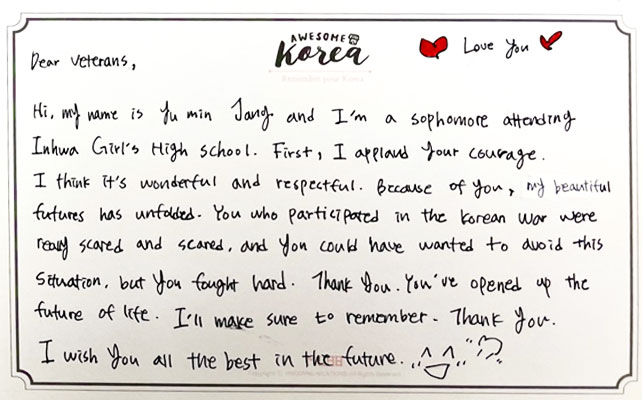 AWESOME
Korea
Remember your Korea
Love You
Dear Veterans,
Hi, my name is Yu min Jang and I'm a sophomore attending
Inhwa Girl's High school. First, I applaud your courage.
I think it's wonderful and respectful. Because of you, my beautiful
futures has unfolded. You who participated in the Korean War were
really scared and scared, and you could have wanted to avoid this
situation, but you fought hard. Thank you. You've opened up the
future of life. I'll make sure to remember. Thank you.
I wish you all the best in the future.